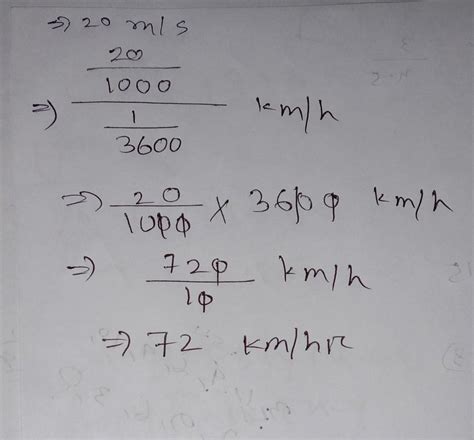 ⇒ 20 m/s
⇒ (20/1000)/(1/3600) km/h
⇒ 20/1000 × 3600 km/h
⇒ 720/10 km/h
⇒ 72 km/hr